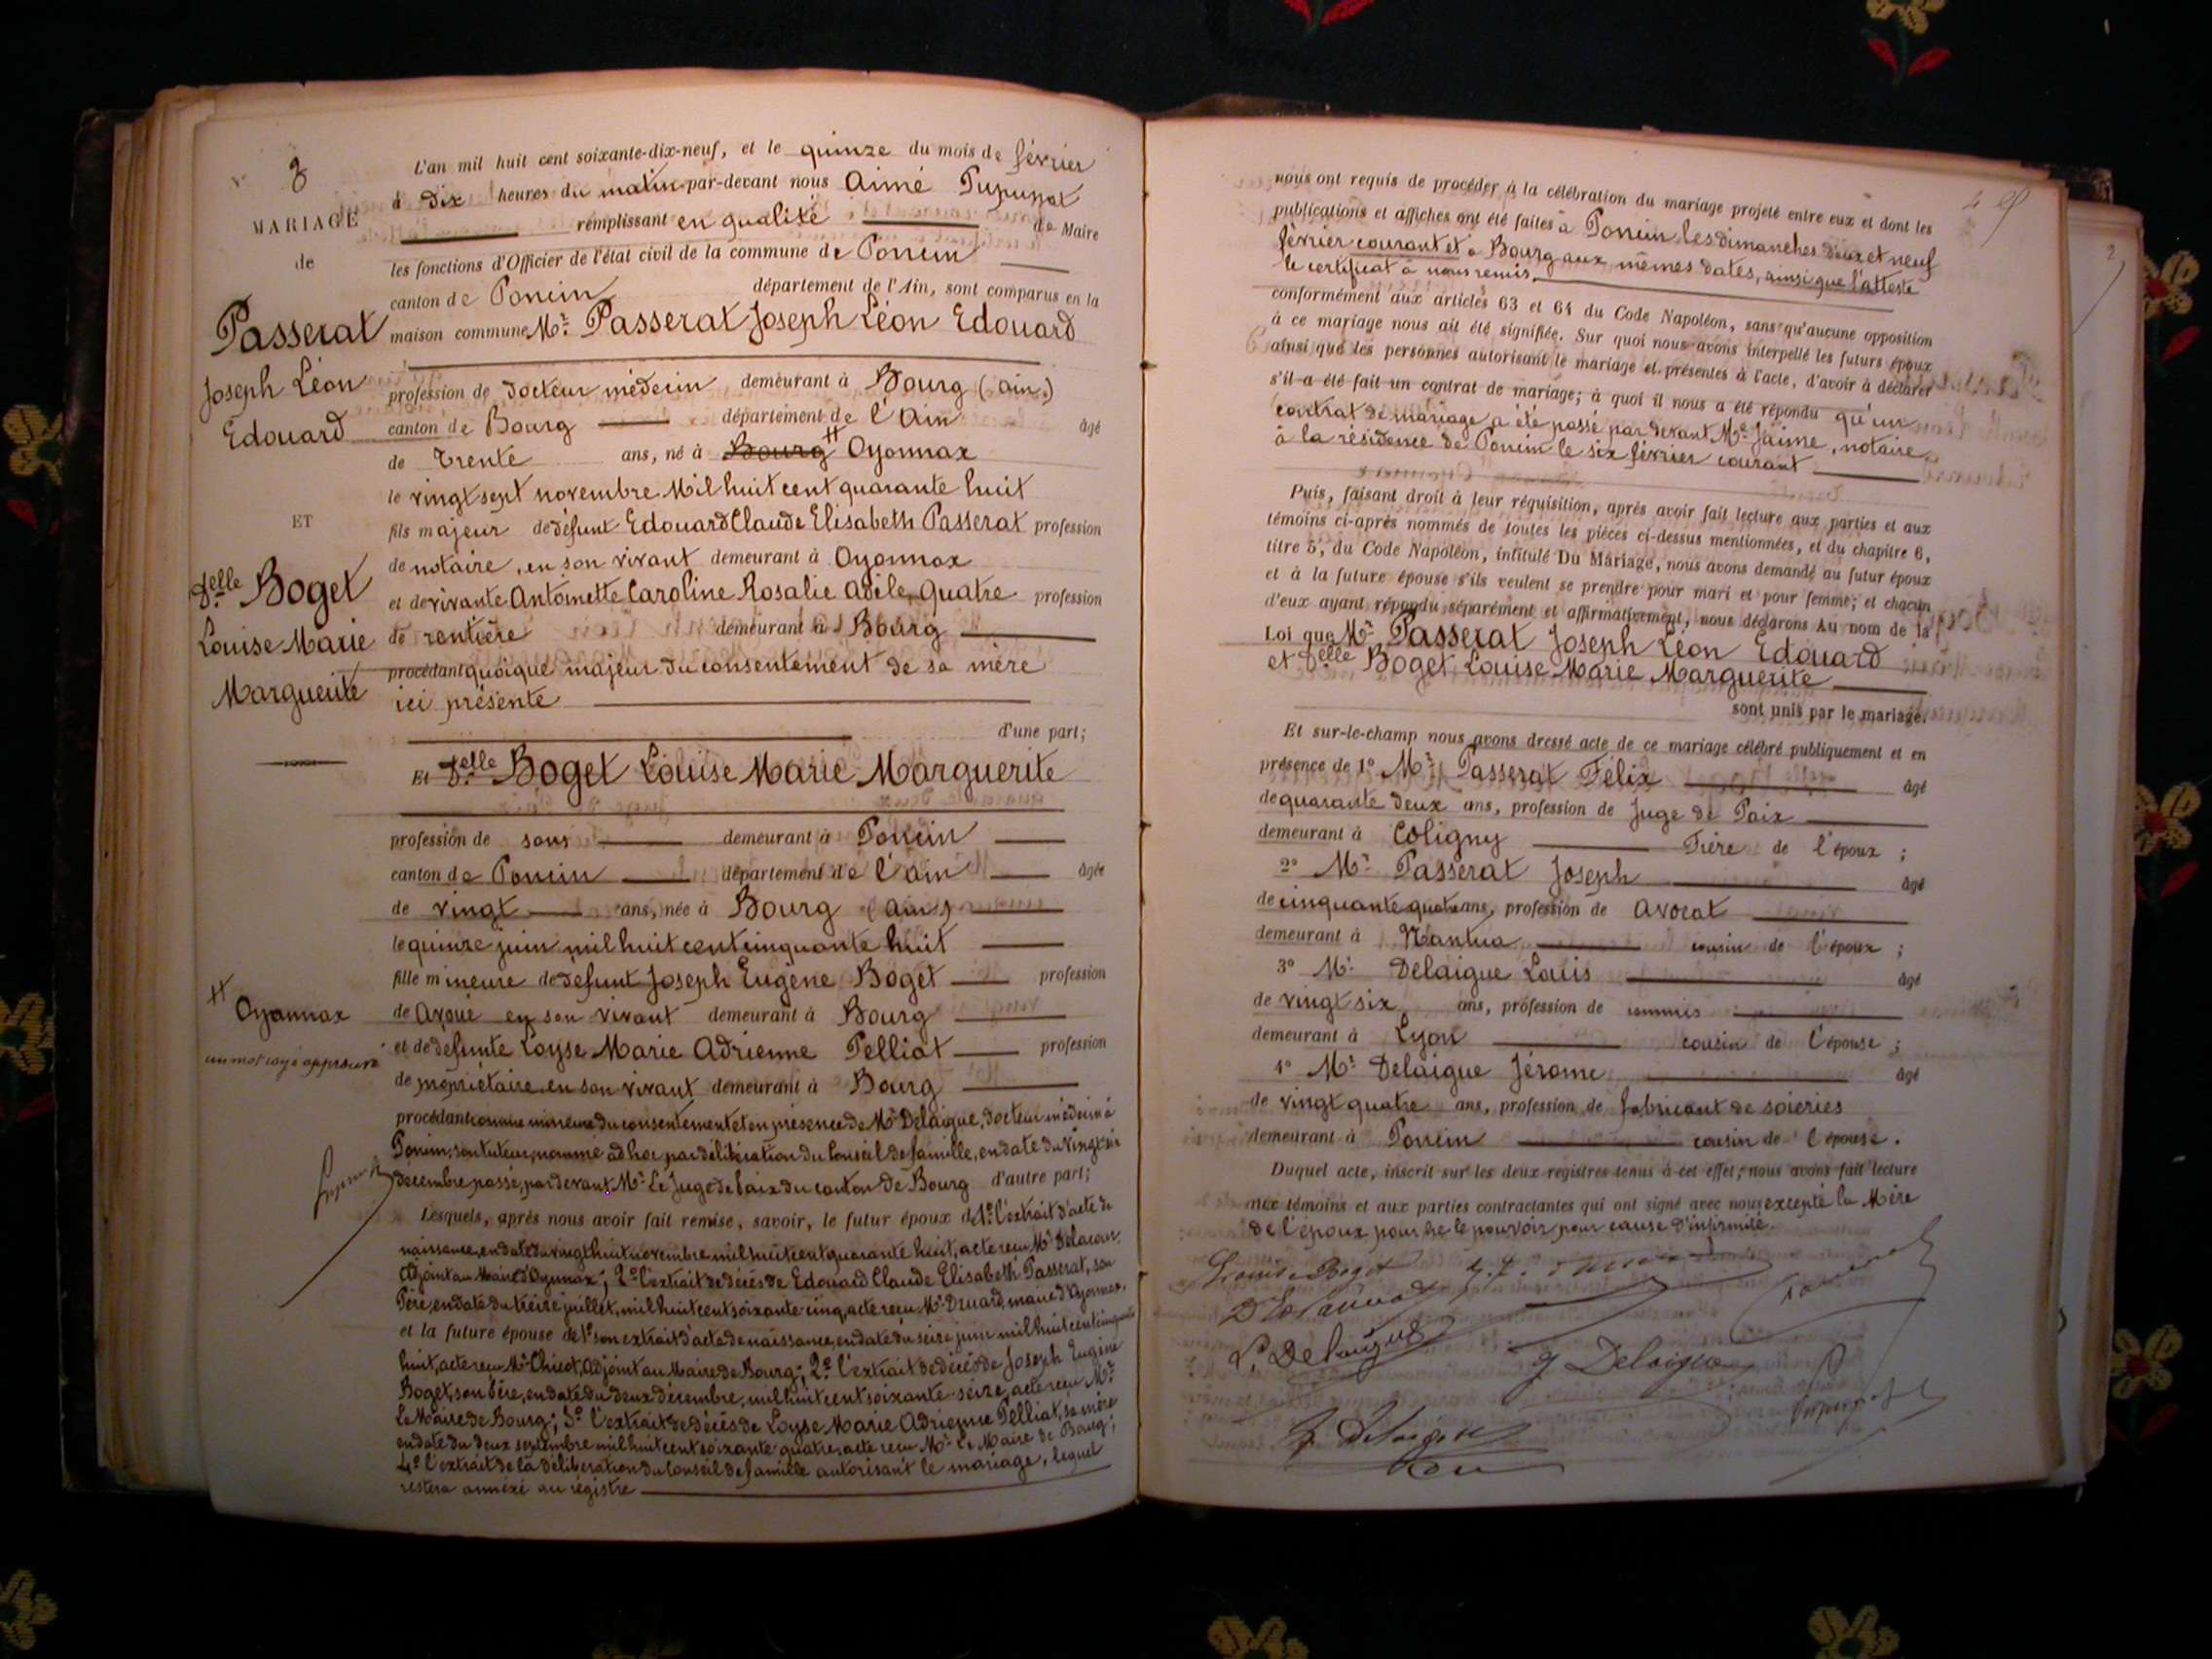 3
MARIAGE
de
Passerat
Joseph Léon
Edouard
ET
Delle Boget
Louise Marie
Marguerite
# Oyonnax
un mot rayé approuvé
L'an mil huit cent soixante-dix-neuf, et le quinze du mois de février
à dix heures du matin par-devant nous Aimé
remplissant en qualité de Maire
les fonctions d'Officier de l'état civil de la commune de Poncin
canton de Poncin département de l'Ain, sont comparus en la
maison commune Mr. Passerat Joseph Léon Edouard
profession de Docteur médecin demeurant à Bourg (ain.)
canton de Bourg département de l'Ain âgé
de trente ans, né à Bourg # Oyonnax
le vingt sept novembre Mil huit cent quarante huit
fils majeur de défunt Edouard Claude Elisabeth Passerat profession
de notaire, en son vivant demeurant à Oyonnax
et de vivante Antoinette Caroline Rosalie Adèle Quatre profession
de rentière demeurant à Bourg
procédant quoique majeur du consentement de sa mère
ici présente
d'une part;
Et Delle Boget Louise Marie Marguerite
profession de sans demeurant à Poncin
canton de Poncin département de l'ain âgée
de vingt ans, née à Bourg (ain)
le quinze juin mil huit cent cinquante huit
fille mineure de défunt Joseph Eugène Boget profession
de Avoué en son vivant demeurant à Bourg
et de défunte Loyse Marie Adrienne Pelliat profession
de propriétaire en son vivant demeurant à Bourg
procédant comme mineure du consentement et en présence de Mr Delaigue, docteur médecin à
Poncin, son tuteur, nommé ad hoc par délibération du Conseil de famille, en date du vingt six
décembre passé, par devant Mr. Le Juge de Paix du canton de Bourg d'autre part;
Lesquels, après nous avoir fait remise, savoir, le futur époux de 1° l'extrait d'acte de
naissance, en date du vingt huit novembre mil huit cent quarante huit, acte reçu Mr Delacour,
Adjoint au Maire d'Oyonnax; 2° l'extrait de décès de Edouard Claude Elisabeth Passerat, son
Père, en date du treize juillet, mil huit cent soixante cinq, acte reçu Mr. Druard, maire d'Oyonnax.
et la future épouse de 1° son extrait d'acte de naissance, en date du seize juin mil huit cent cinquante
huit, acte reçu Mr Chicot, Adjoint au Maire de Bourg; 2° l'extrait de décès de Joseph Eugène
Boget, son Père, en date du deux décembre, mil huit cent soixante seize, acte reçu Mr.
Le Maire de Bourg; 3° l'extrait de décès de Loyse Marie Adrienne Pelliat, sa mère
en date du deux septembre mil huit cent soixante quatre, acte reçu Mr. Le Maire de Bourg;
4° l'extrait de la délibération du Conseil de famille autorisant le mariage, lequel
restera annexé au registre
nous ont requis de procéder à la célébration du mariage projeté entre eux et dont les
publications et affiches ont été faites à Poncin, les dimanches deux et neuf
février courant et à Bourg aux mêmes dates, ainsi que l'atteste
le certificat à nous remis.
conformément aux articles 63 et 64 du Code Napoléon, sans qu'aucune opposition
à ce mariage nous ait été signifiée. Sur quoi nous avons interpellé les futurs époux
ainsi que les personnes autorisant le mariage et présentes à l'acte, d'avoir à déclarer
s'il a été fait un contrat de mariage; à quoi il nous a été répondu qu'un
contrat de mariage a été passé par devant Me Jaime, notaire
à la résidence de Poncin le six février courant
Puis, faisant droit à leur réquisition, après avoir fait lecture aux parties et aux
témoins ci-après nommés de toutes les pièces ci-dessus mentionnées, et du chapitre 6,
titre 5, du Code Napoléon, intitulé Du Mariage, nous avons demandé au futur époux
et à la future épouse s'ils veulent se prendre pour mari et pour femme; et chacun
d'eux ayant répondu séparément et affirmativement, nous déclarons au nom de la
Loi que Mr. Passerat Joseph Léon Edouard
et Delle Boget Louise Marie Marguerite
sont unis par le mariage.
Et sur-le-champ nous avons dressé acte de ce mariage célébré publiquement et en
présence de 1° Mr. Passerat Félix âgé
de quarante deux ans, profession de Juge de Paix
demeurant à Coligny Frère de l'époux ;
2° Mr. Passerat Joseph âgé
de cinquante quatre ans, profession de Avocat
demeurant à Nantua cousin de l'époux ;
3° Mr. Delaigue Louis âgé
de vingt six ans, profession de commis
demeurant à Lyon cousin de l'épouse ;
4° Mr. Delaigue Jérome âgé
de vingt quatre ans, profession de fabricant de soieries
demeurant à Poncin cousin de l'épouse.
Duquel acte, inscrit sur les deux registres tenus à cet effet, nous avons fait lecture
aux témoins et aux parties contractantes qui ont signé avec nous excepté la Mère
de l'époux pour ne le pouvoir pour cause d'infirmité.
Louise Boget
L. Delaigue
J Delaigue